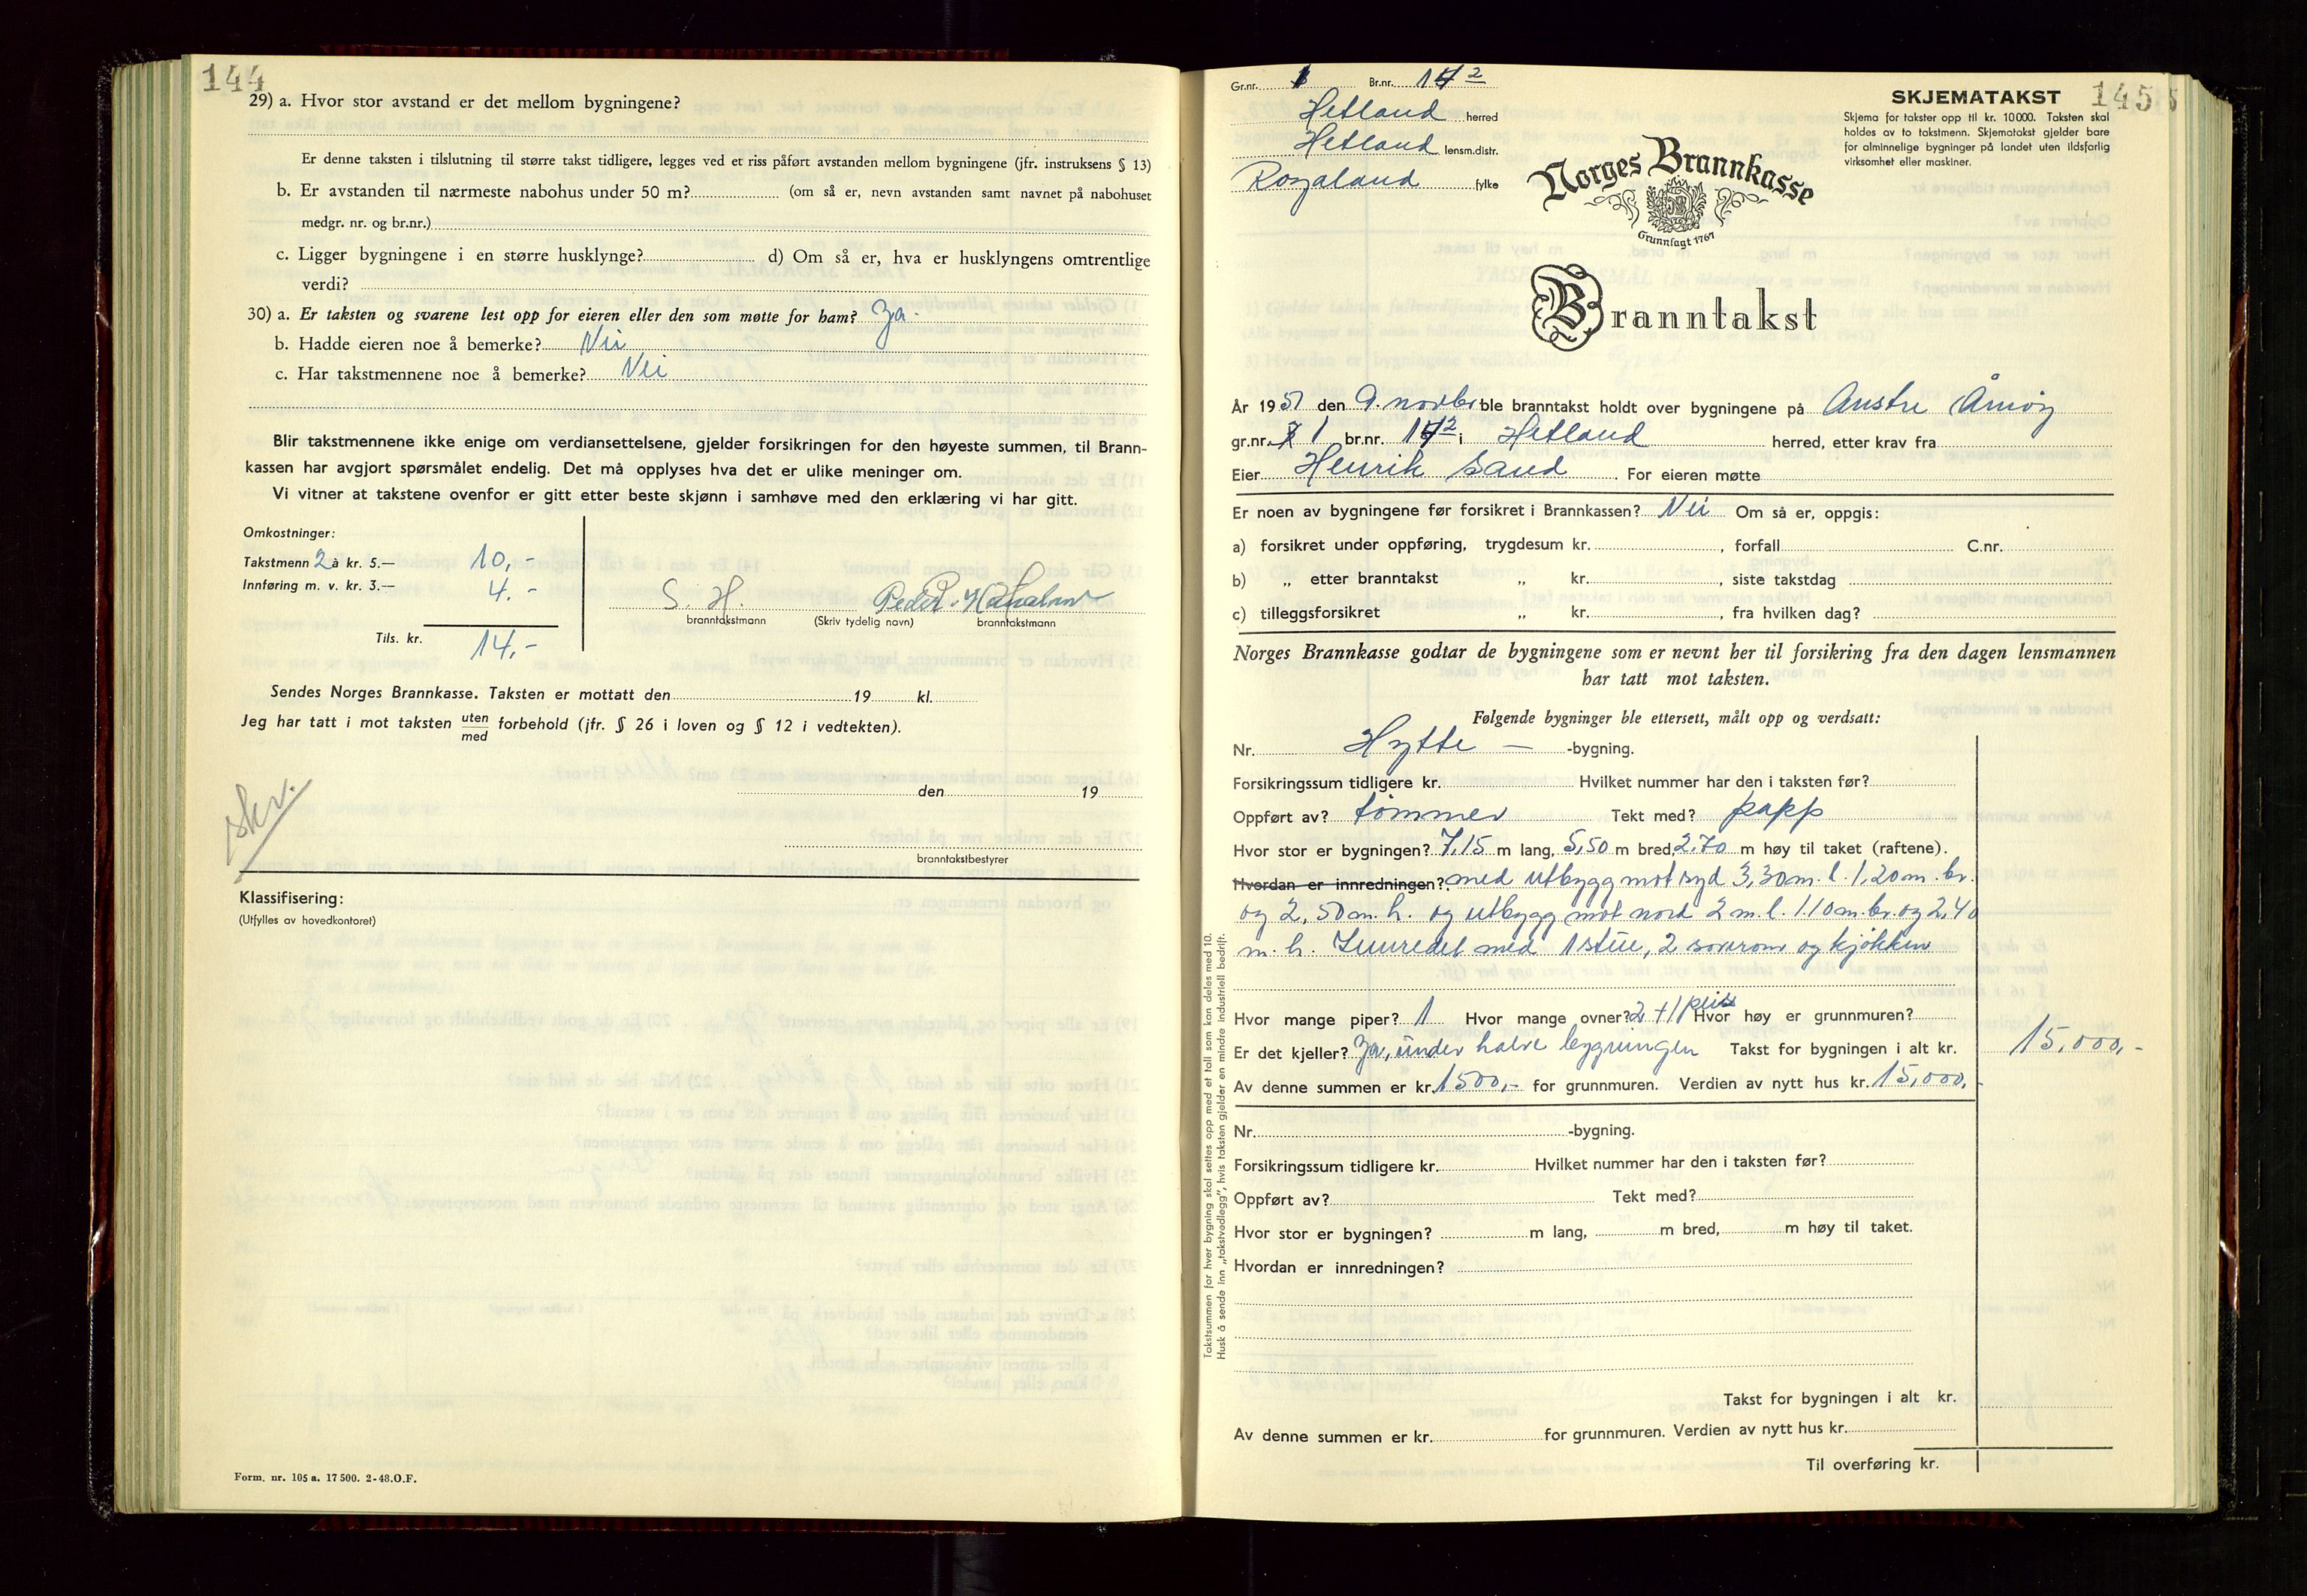 144
29) a. Hvor stor avstand er det mellom bygningene?
Er denne taksten i tilslutning til større takst tidligere, legges ved et riss påført avstanden mellom bygningene (jfr. instruksens § 13)
b. Er avstanden til nærmeste nabohus under 50 m? (om så er, nevn avstanden samt navnet på nabohuset
medgr. nr. og br.nr.)
c. Ligger bygningene i en større husklynge? d) Om så er, hva er husklyngens omtrentlige
verdi?
30) a. Er taksten og svarene lest opp for eieren eller den som møtte for ham? Ja.
b. Hadde eieren noe å bemerke? Nei
c. Har takstmennene noe å bemerke? Nei
Blir takstmennene ikke enige om verdiansettelsene, gjelder forsikringen for den høyeste summen, til Brann-
kassen har avgjort spørsmålet endelig. Det må opplyses hva det er ulike meninger om.
Vi vitner at takstene ovenfor er gitt etter beste skjønn i samhøve med den erklæring vi har gitt.
Omkostninger:
Takstmenn 2 à kr. 5.— 10,-
Innføring m. v. kr. 3.— 4.-
Tils. kr. 14,-
S. H. Peder
branntakstmann (Skriv tydelig navn) branntakstmann
Sendes Norges Brannkasse. Taksten er mottatt den 19 kl.
Jeg har tatt i mot taksten uten/med forbehold (jfr. § 26 i loven og § 12 i vedtekten).
den 19
skr.
branntakstbestyrer
Klassifisering:
(Utfylles av hovedkontoret)
Form. nr. 105 a. 17 500. 2-48.O.F.
145
Gr.nr. 1 Br.nr. 142
Hetland herred
Hetland lensm.distr.
Rogaland fylke
SKJEMATAKST
Skjema for takster opp til kr. 10 000. Taksten skal
holdes av to takstmenn. Skjematakst gjelder bare
for alminnelige bygninger på landet uten ildsfarlig
virksomhet eller maskiner.
Norges Brannkasse
Grunnlagt 1767
Branntakst
År 1951 den 9. novbr ble branntakst holdt over bygningene på Austre Åmøy
gr.nr. 1 br.nr. 142 i Hetland herred, etter krav fra
Eier Henrik Sand For eieren møtte
Er noen av bygningene før forsikret i Brannkassen? Nei Om så er, oppgis:
a) forsikret under oppføring, trygdesum kr. , forfall C.nr.
b) „ etter branntakst „ kr. , siste takstdag
c) tilleggsforsikret „ kr. , fra hvilken dag?
Norges Brannkasse godtar de bygningene som er nevnt her til forsikring fra den dagen lensmannen
har tatt mot taksten.
Følgende bygninger ble ettersett, målt opp og verdsatt:
Nr. Hytte — -bygning.
Forsikringssum tidligere kr. Hvilket nummer har den i taksten før?
Oppført av? tømmer Tekt med? papp
Hvor stor er bygningen? 7,15 m lang, 5,50 m bred, 2,70 m høy til taket (raftene).
Hvordan er innredningen? med utbygg mot syd 3,30 m. l. 1,20 m. br.
og 2,50 m. h. og utbygg mot nord 2 m. l. 1.10 m. br. og 2,40
m. h. Innredet med 1 stue, 2 soverom og kjøkken
Hvor mange piper? 1 Hvor mange ovner? 2 + 1 peis Hvor høy er grunnmuren?
Er det kjeller? Ja, under halve bygningen Takst for bygningen i alt kr. 15.000,-
Av denne summen er kr. 1500,- for grunnmuren. Verdien av nytt hus kr. 15,000,-
Nr. -bygning.
Forsikringssum tidligere kr. Hvilket nummer har den i taksten før?
Oppført av? Tekt med?
Hvor stor er bygningen? m lang, m bred, m høy til taket.
Hvordan er innredningen?
Takst for bygningen i alt kr.
Av denne summen er kr. for grunnmuren. Verdien av nytt hus kr.
Til overføring kr.
Takstsummen for hver bygning skal settes opp med et tall som kan deles med 10.
Husk å sende inn „takstvedlegg", hvis taksten gjelder en mindre industriell bedrift.